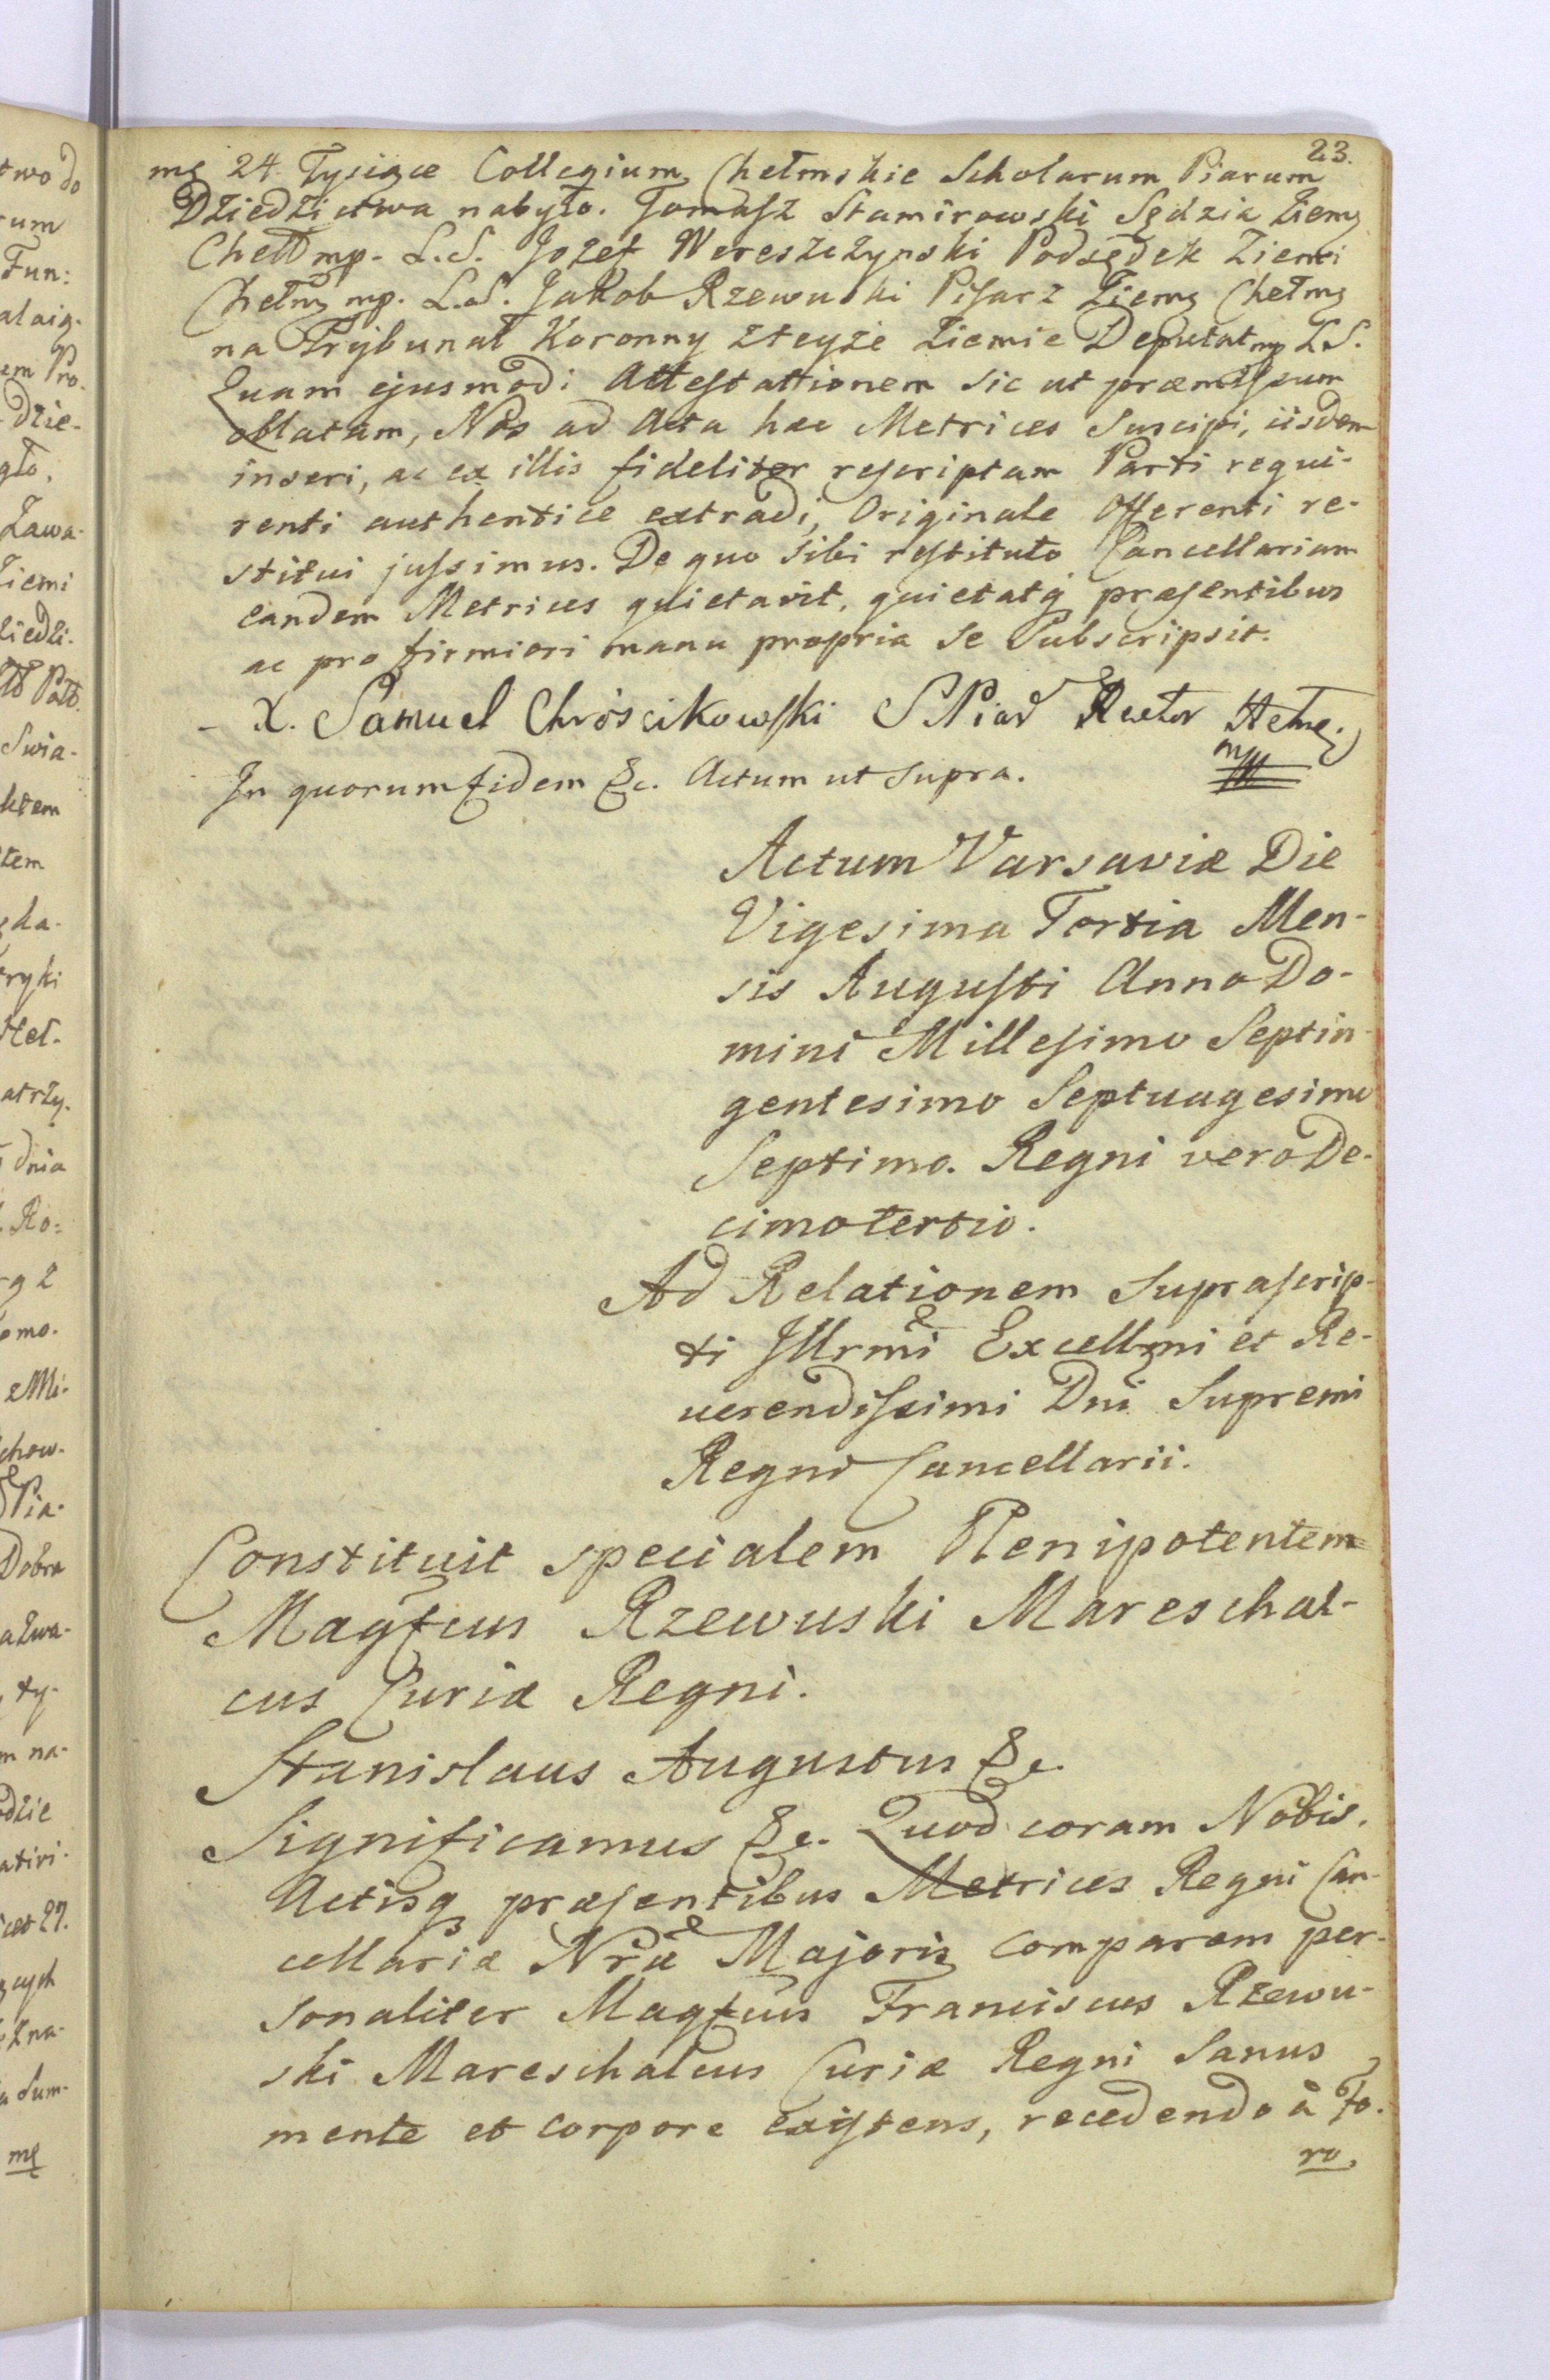 23.
mę 24 Tysiące Collegium Chełmskie Scholarum Piarum
Dziedzictwa nabyło. Tomasz Stamirowski Sędzia Ziemę
Chełł mp. L.S. Jozef Wereszczynski Podsędek Ziemi
Chełmę mp. L.S. Jakob Rzewuski Pisarz Ziemę Chełmę
na Trybunał Koronny z teyże Ziemie Deputat mp L.S.
Quam ejusmodi Attestattionem sic ut præmissum
oblatam, Nos ad Acta hæc Metrices Suscipi, iisdem
inseri, ac ex illis fideliter rescriptam Parti requi-
renti authentice extradi, Originale Offerenti re-
stitui jussimus. De quo sibi restituto Cancellariam
eandem Metrices quietavit, quietatq præsentibus
ac pro firmiori manu propria se Subscripsit.
- X. Samuel Chróscikowski S Piar Rector
mp
In quorum fidem &c. Actum ut supra.
Actum Varsaviæ Die
Vigesima Tertia Men-
sis Augusti Anno Do-
mini Millesimo Septin-
gentesimo Septuagesimo
Septimo. Regni vero De-
cimo tertio.
Ad Relationem Suprascrip-
ti Illrmi Excellmi et Re-
verendissimi Dni Supremi
Regni Cancellarii.
Constituit specialem Plenipotentem
Magfcus Rzewuski Mareschal-
cus Curiæ Regni.
Stanislaus Augustus &c.
Significamus &c. Quod coram Nobis,
Actisq præsentibus Metrices Regni Can-
cellariæ Nræ Majoris comparem per-
sonaliter Magfcus Franciscus Rzewu-
ski Mareschalcus Curiæ Regni Sanus
mente et corpore existens, recedendo à fo-
ro,